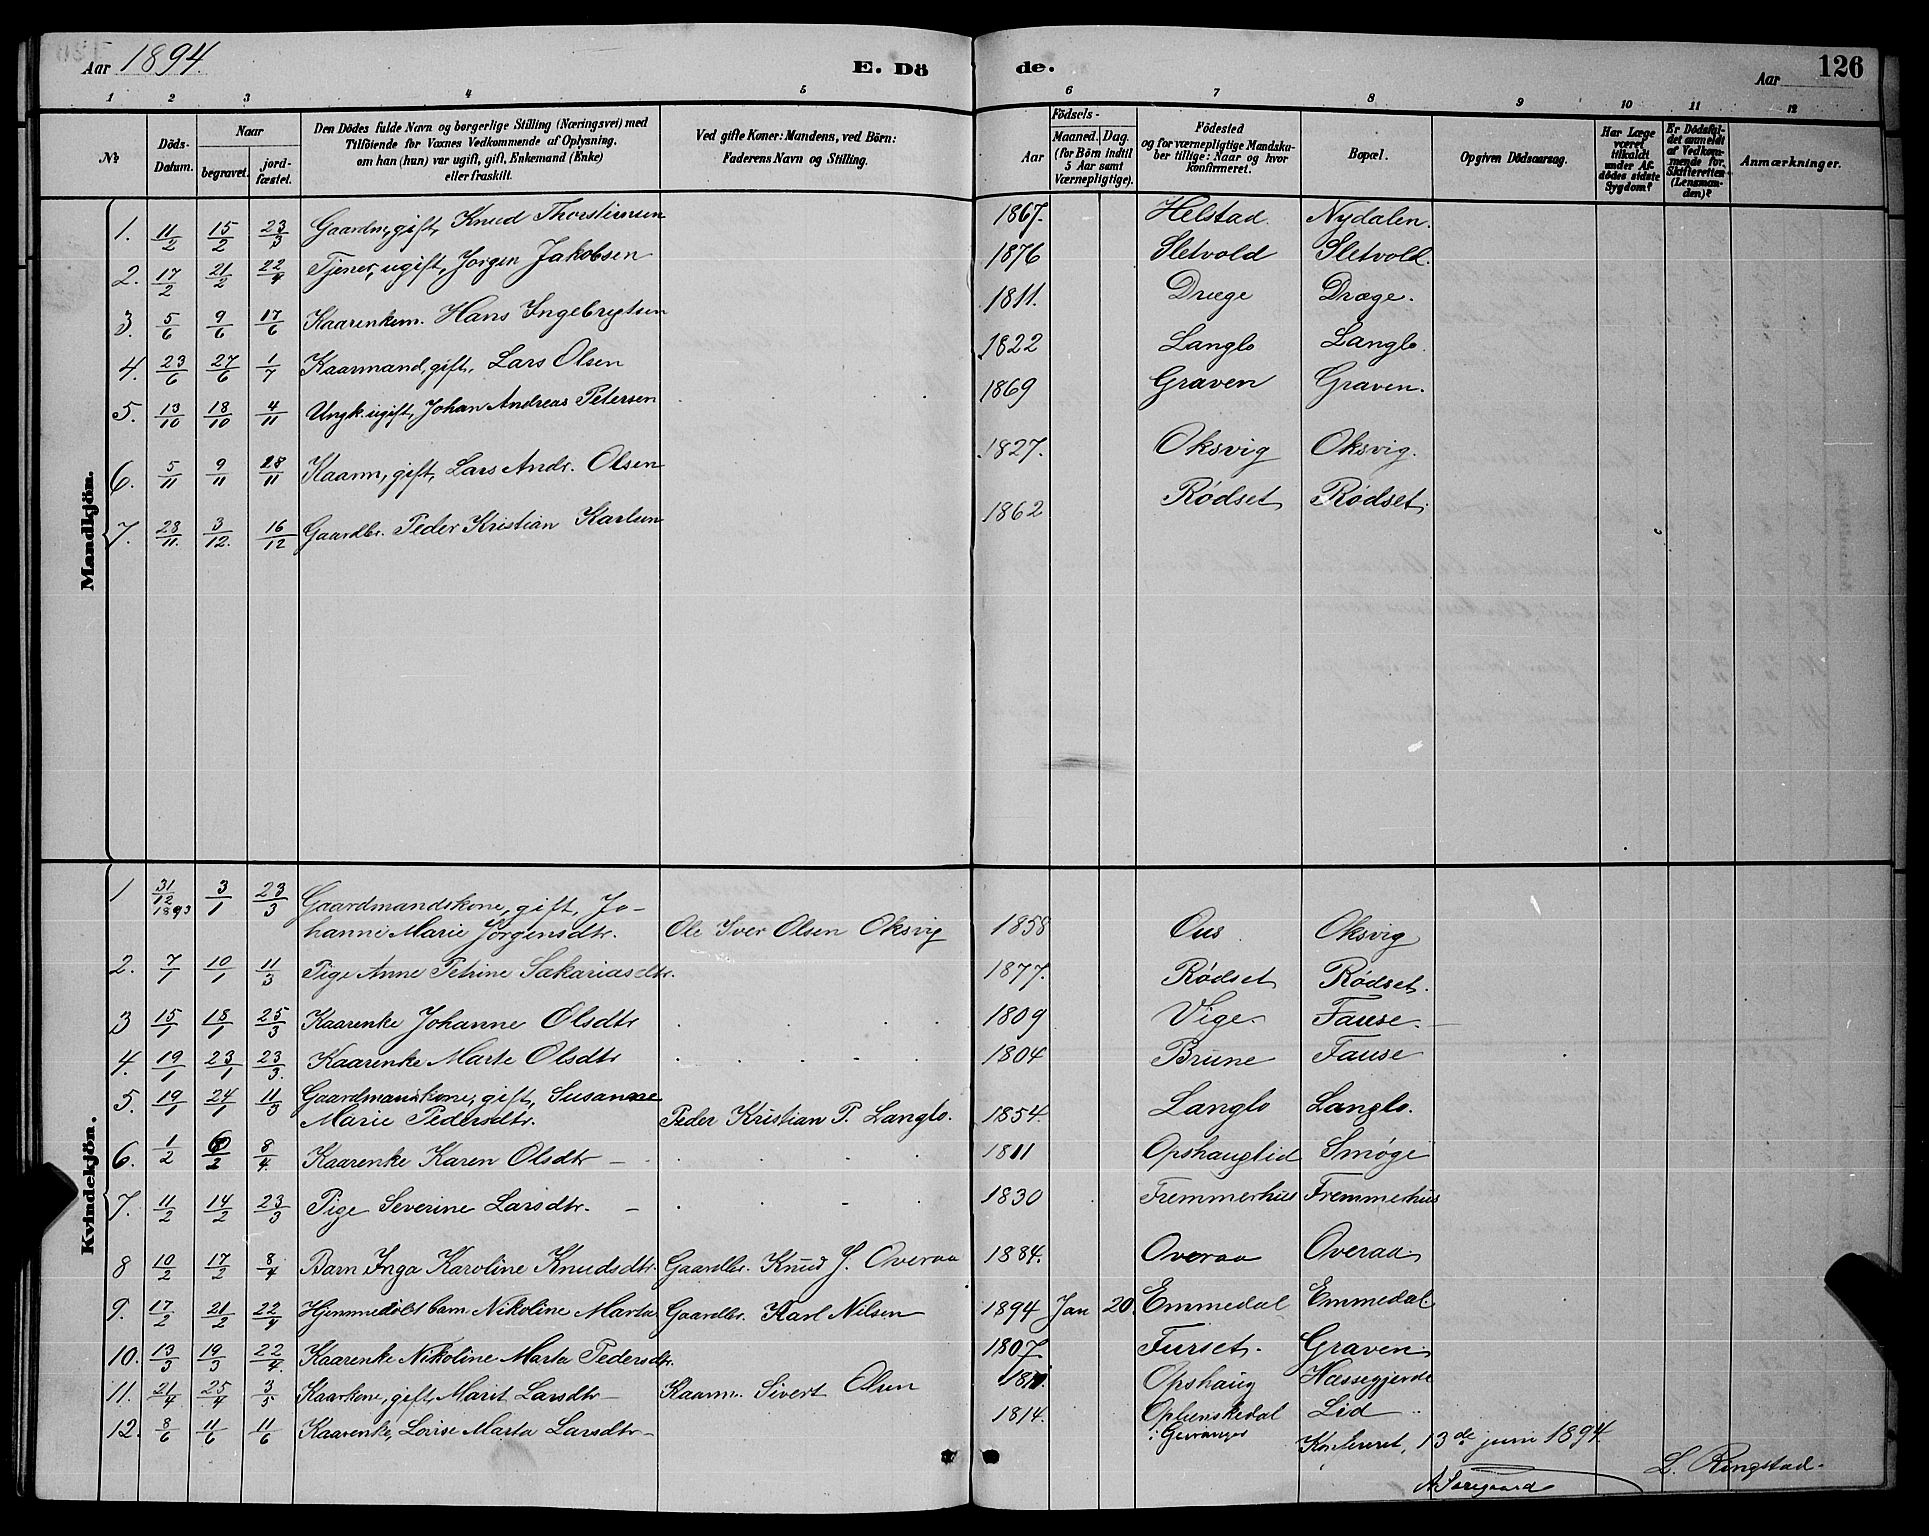 Aar 1894. E. Dö de. Aar 126
1 2 3 4 5 6 7 8 9 10 11 12
No. Döds-Datum. Naar begravet. jordfæstet. Den Dödes fulde Navn og borgerlige Stilling (Næringsvei) med Tilföiende for Voxnes Vedkommende af Oplysning, om han (hun) var ugift, gift, Enkemand (Enke) eller fraskilt. Ved gifte Koner: Mandens, ved Börn: Faderens Navn og Stilling. Födsels- Aar Maaned. Dag. (for Börn indtil 5 Aar samt Værnepligtige). Födested og for værnepligtige Mandskaber tillige: Naar og hvor konfirmeret. Bopæl. Opgiven Dödsaarsag. Har Læge været tilkaldt under Afdödes sidste Sygdom? Er Dödsfaldet anmeldt af Vedkommende for Skifteretten (Lensmanden)? Anmærkninger.
Mandkjön.
1. 11/2 15/2 23/3 Gaardm., gift, Knud Thorstensen 1867. Helstad. Nydalen.
2. 17/2 21/2 22/4 Tjener, ugift, Jorgen Jakobsen 1876 Sletvold Sletvold.
3. 5/6 9/6 17/6 Kaarenkem. Hans Ingebrigtsen 1811. Dræge Dræge.
4. 23/6 27/6 1/7 Kaarmand, gift, Lars Olsen 1822 Langlo Langlo.
5. 13/10 18/10 4/11 Ungk. ugift, Johan Andreas Petersen 1869 Graven Graven.
6. 5/11 9/11 28/11 Kaarm, gift, Lars Andr. Olsen 1827. Oksvig Oksvig.
7. 28/11. 3/12. 16/12 Gaardbr. Peder Kristian Karlsen 1862 Rödset Rödset.
Kvindekjön.
1 31/12 1893 3/1 23/3 Gaardmandskone, gift, Jo-
hanne Marie Jörgensdtr. Ole Iver Olsen Oksvig 1858 Ous Oksvig
2. 7/1 10/1 11/3 Pige Anne Petrine Sakariasdtr. 1877. Rödset Rödset.
3 15/1 18/1 25/3 Kaarenke Johanne Olsdtr 1809 Vige. Fause.
4. 19/1 23/1 23/3. Kaarenke Marte Olsdtr 1804 Brune Fause
5. 19/1 24/1 11/3 Gaardmanskone, gift, Susanne
Marie Pedersdtr. Peder Kristian P. Langlo. 1854. Langlo Langlo.
6. 1/2 6/2 8/4 Kaarenke Karen Olsdtr 1811 Opshauglid Smøge
7. 11/2 14/2 23/3 Pige Severine Larsdtr. 1830 Fremmerhus Fremmerhus
8 10/2 17/2 8/4 Barn Inga Karoline Knudsdtr. Gaardbr. Knud J. Overaa 1884. Overaa Overaa.
9. 17/2 21/2 22/4 Hjemmedöbt barn Nikoline Marta Gaardbr. Karl Nilsen 1894 Jan 20 Emmedal Emmedal.
10. 13/3 19/3 22/4. Kaarenke Nikoline Marta Pedersdtr. 1807 Furset. Graven.
11. 21/4 25/4 3/5 Kaarkone, gift, Marit Larsdtr Kaarm. Sivert Olsen Opshaug Hæssegjerde
12. 8/6 11/6 11/6 Kaarenke, Lovise Marta Larsdtr 1814. Oplenskedal Lid
i Geiranger Konfereret, 13de juni 1894.
L. Ringstad.